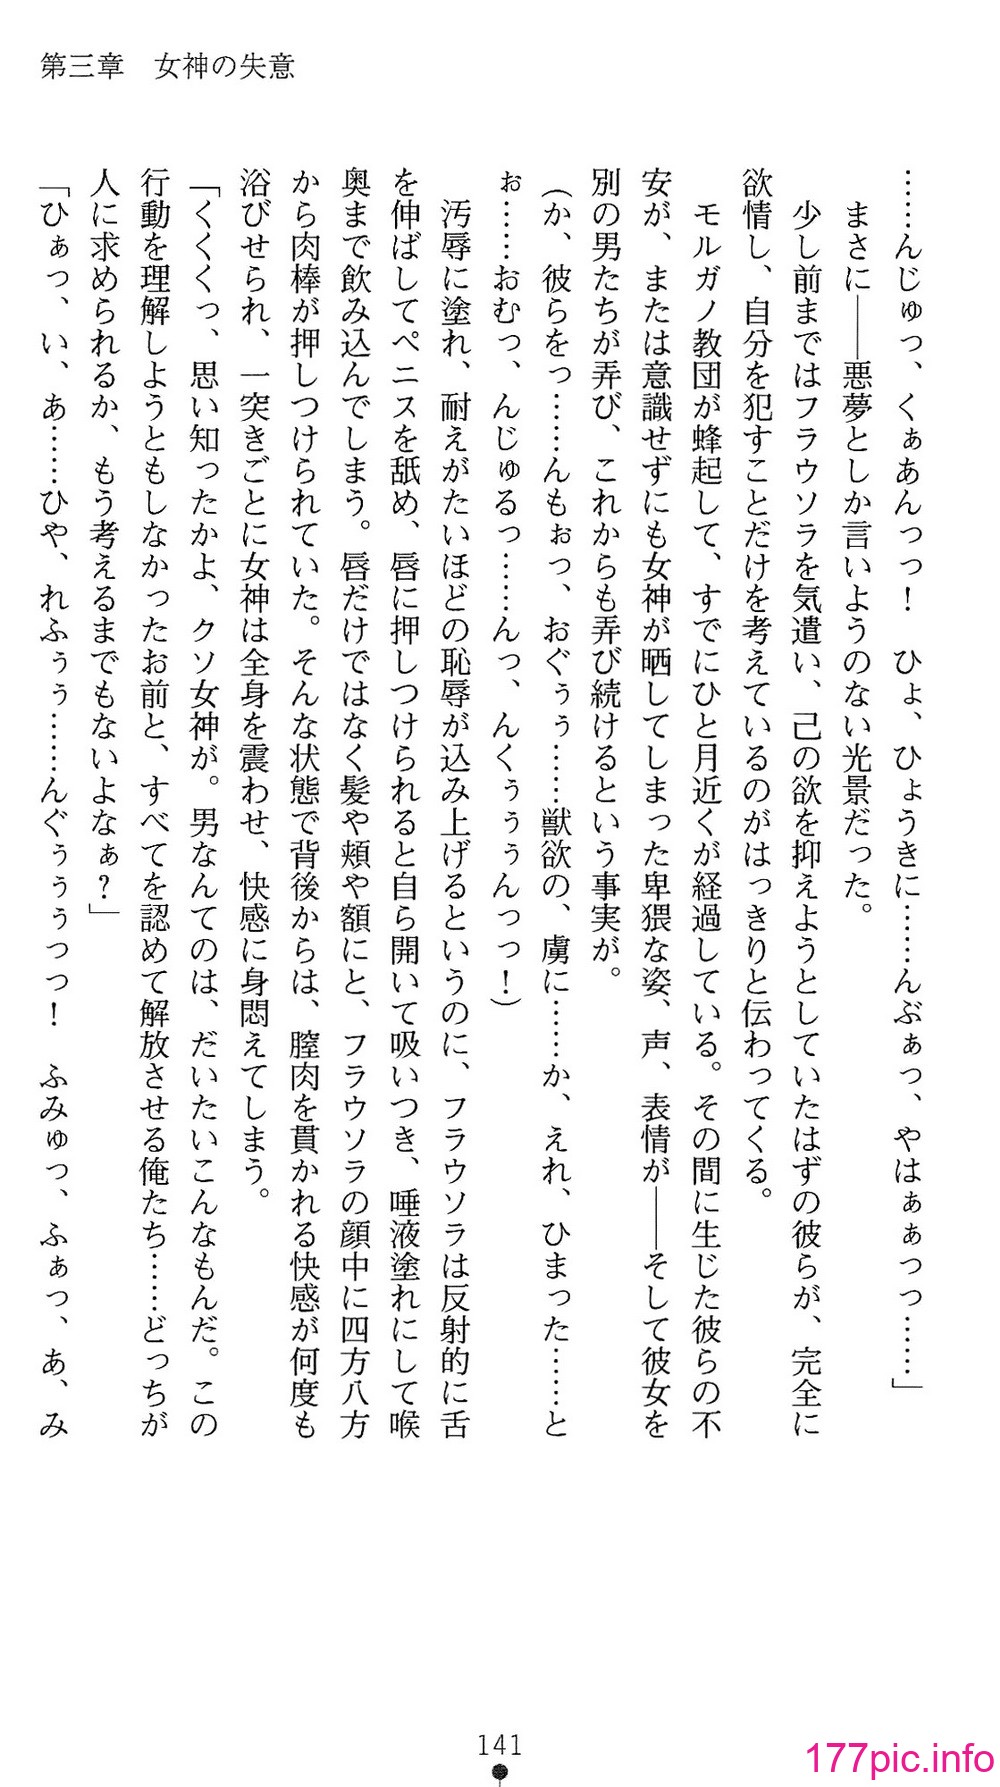 第三章　女神の失意
……んじゅっ、くぁあんっっ！　ひょ、ひょうきに……んぶぁっ、やはぁぁっっ……」
　まさに――悪夢としか言いようのない光景だった。
　少し前まではフラウソラを気遣い、己の欲を抑えようとしていたはずの彼らが、完全に
欲情し、自分を犯すことだけを考えているのがはっきりと伝わってくる。
　モルガノ教団が蜂起して、すでにひと月近くが経過している。その間に生じた彼らの不
安が、または意識せずにも女神が晒してしまった卑猥な姿、声、表情が――そして彼女を
別の男たちが弄び、これからも弄び続けるという事実が。
（か、彼らをっ……んもぉっ、おぐぅぅ……獣欲の、虜に……か、えれ、ひまった……と
ぉ……おむっ、んじゅるっ……んっ、んくぅぅぅんっっ！）
　汚辱に塗れ、耐えがたいほどの恥辱が込み上げるというのに、フラウソラは反射的に舌
を伸ばしてペニスを舐め、唇に押しつけられると自ら開いて吸いつき、唾液塗れにして喉
奥まで飲み込んでしまう。唇だけではなく髪や頬や額にと、フラウソラの顔中に四方八方
から肉棒が押しつけられていた。そんな状態で背後からは、膣肉を貫かれる快感が何度も
浴びせられ、一突きごとに女神は全身を震わせ、快感に身悶えてしまう。
「くくくっ、思い知ったかよ、クソ女神が。男なんてのは、だいたいこんなもんだ。この
行動を理解しようともしなかったお前と、すべてを認めて解放させる俺たち……どっちが
人に求められるか、もう考えるまでもないよなぁ？」
「ひぁっ、い、あ……ひや、れふぅぅ……んぐぅぅぅっっ！　ふみゅっ、ふぁっ、あ、み
141
177pic.info